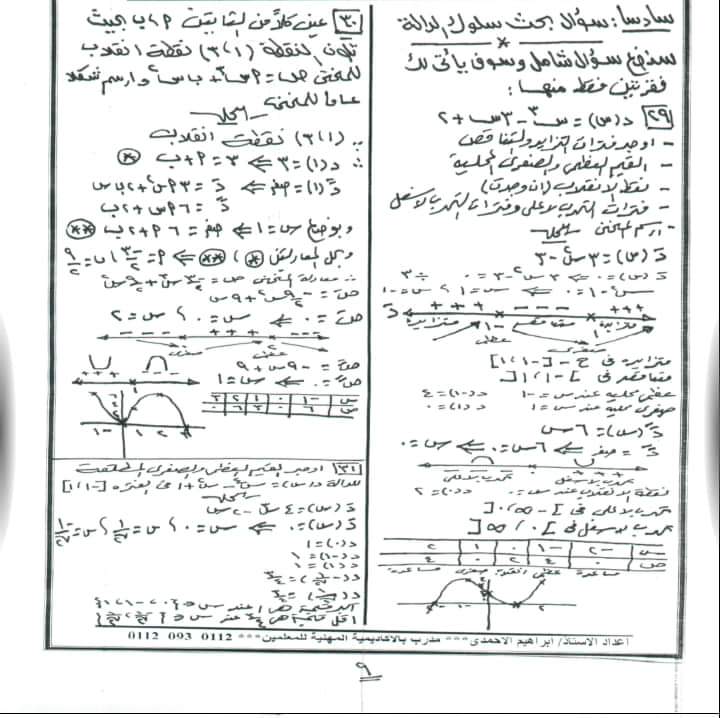 سادسا: سؤال بحث سلوك الدالة
سنضع سؤال شامل وسوف يأتى لك
فقرتين فقط منها:
٢٩ د(س) = س٣ - ٣س + ٢
- اوجد فترات التزايد والتناقص
- القيم العظمى والصغرى المحلية
- نقط الانقلاب (ان وجدت)
- فترات التحدب لأعلى وفترات التحدب لأسفل
- ارسم المنحنى الحل
دَ(س) = ٣س٢ - ٣
دَ(س) = ٠ ⇐ ٣س٢ - ٣ = ٠ ÷ ٣
س٢ - ١ = ٠ ⇐ س = ١ ، س = -١
+++ --- +++
متزايدة متناقصة متزايدة
عظمى
صغرى
متزايدة فى ح - [-١،١]
متناقصة فى ]-١،١[
عظمى محلية عند س = -١ د(-١) = ٤
صغرى محلية عند س = ١ د(١) = ٠
دً(س) = ٦س
دً = صفر ⇐ ٦س = ٠ ⇐ س = ٠
نقطة الانقلاب عند س = ٠ د(٠) = ٢
تحدب لأعلى فى ]-∞،٠[
تحدب لأسفل فى ]٠،∞[
س -٢ -١ ٠ ١ ٢
ص ٠ ٤ ٢ ٠ ٤
٣٠ عين كلاً من الثابتين ٢، ب بحيث
تكون النقطة (١،٣) نقطة انقلاب
للمنحنى ص = ٢س٣ + ب س٢ وارسم شكلا
عاما للمنحنى
الحل
∵ (١،٣) نقطة انقلاب
∴ د(١) = ٣ ⇐ ٣ = ٢ + ب *
دً(١) = صفر ⇐ دَ = ٣٢س٢ + ٢ب س
دً = ٦٢س + ٢ب
وبوضع س = ١ ⇐ صفر = ٦٢ + ٢ب **
وبحل المعادلتين * ، ** ⇐ ٢ = -٣/٢ ، ب = ٩/٢
∴ معادلة المنحنى ص = -٣/٢ س٣ + ٩/٢ س٢
صَ = -٩/٢ س٢ + ٩س
صَ = ٠ ⇐ س = ٠ ، س = ٢
--- +++ ---
صغرى عظمى
صً = -٩س + ٩
صً = ٠ ⇐ س = ١
س -١ ٠ ١ ٢ ٣
ص ٦ ٠ ٣ ٦ ٠
٣١ اوجد القيم العظمى والصغرى المطلقة
للدالة د(س) = س٤ - س٢ + ١ فى الفترة [-١،١]
الحل
دَ(س) = ٤س٣ - ٢س
دَ(س) = ٠ ⇐ س = ٠ ، س = ١/√٢ ، س = -١/√٢
د(٠) = ١
د(-١) = ١
د(١) = ١
د(-١/√٢) = ٣/٤
د(١/√٢) = ٣/٤
اعداد الاستاذ/ ابراهيم الاحمدى*** مدرب بالاكاديمية المهنية للمعلمين*** 0112 093 0112
٩